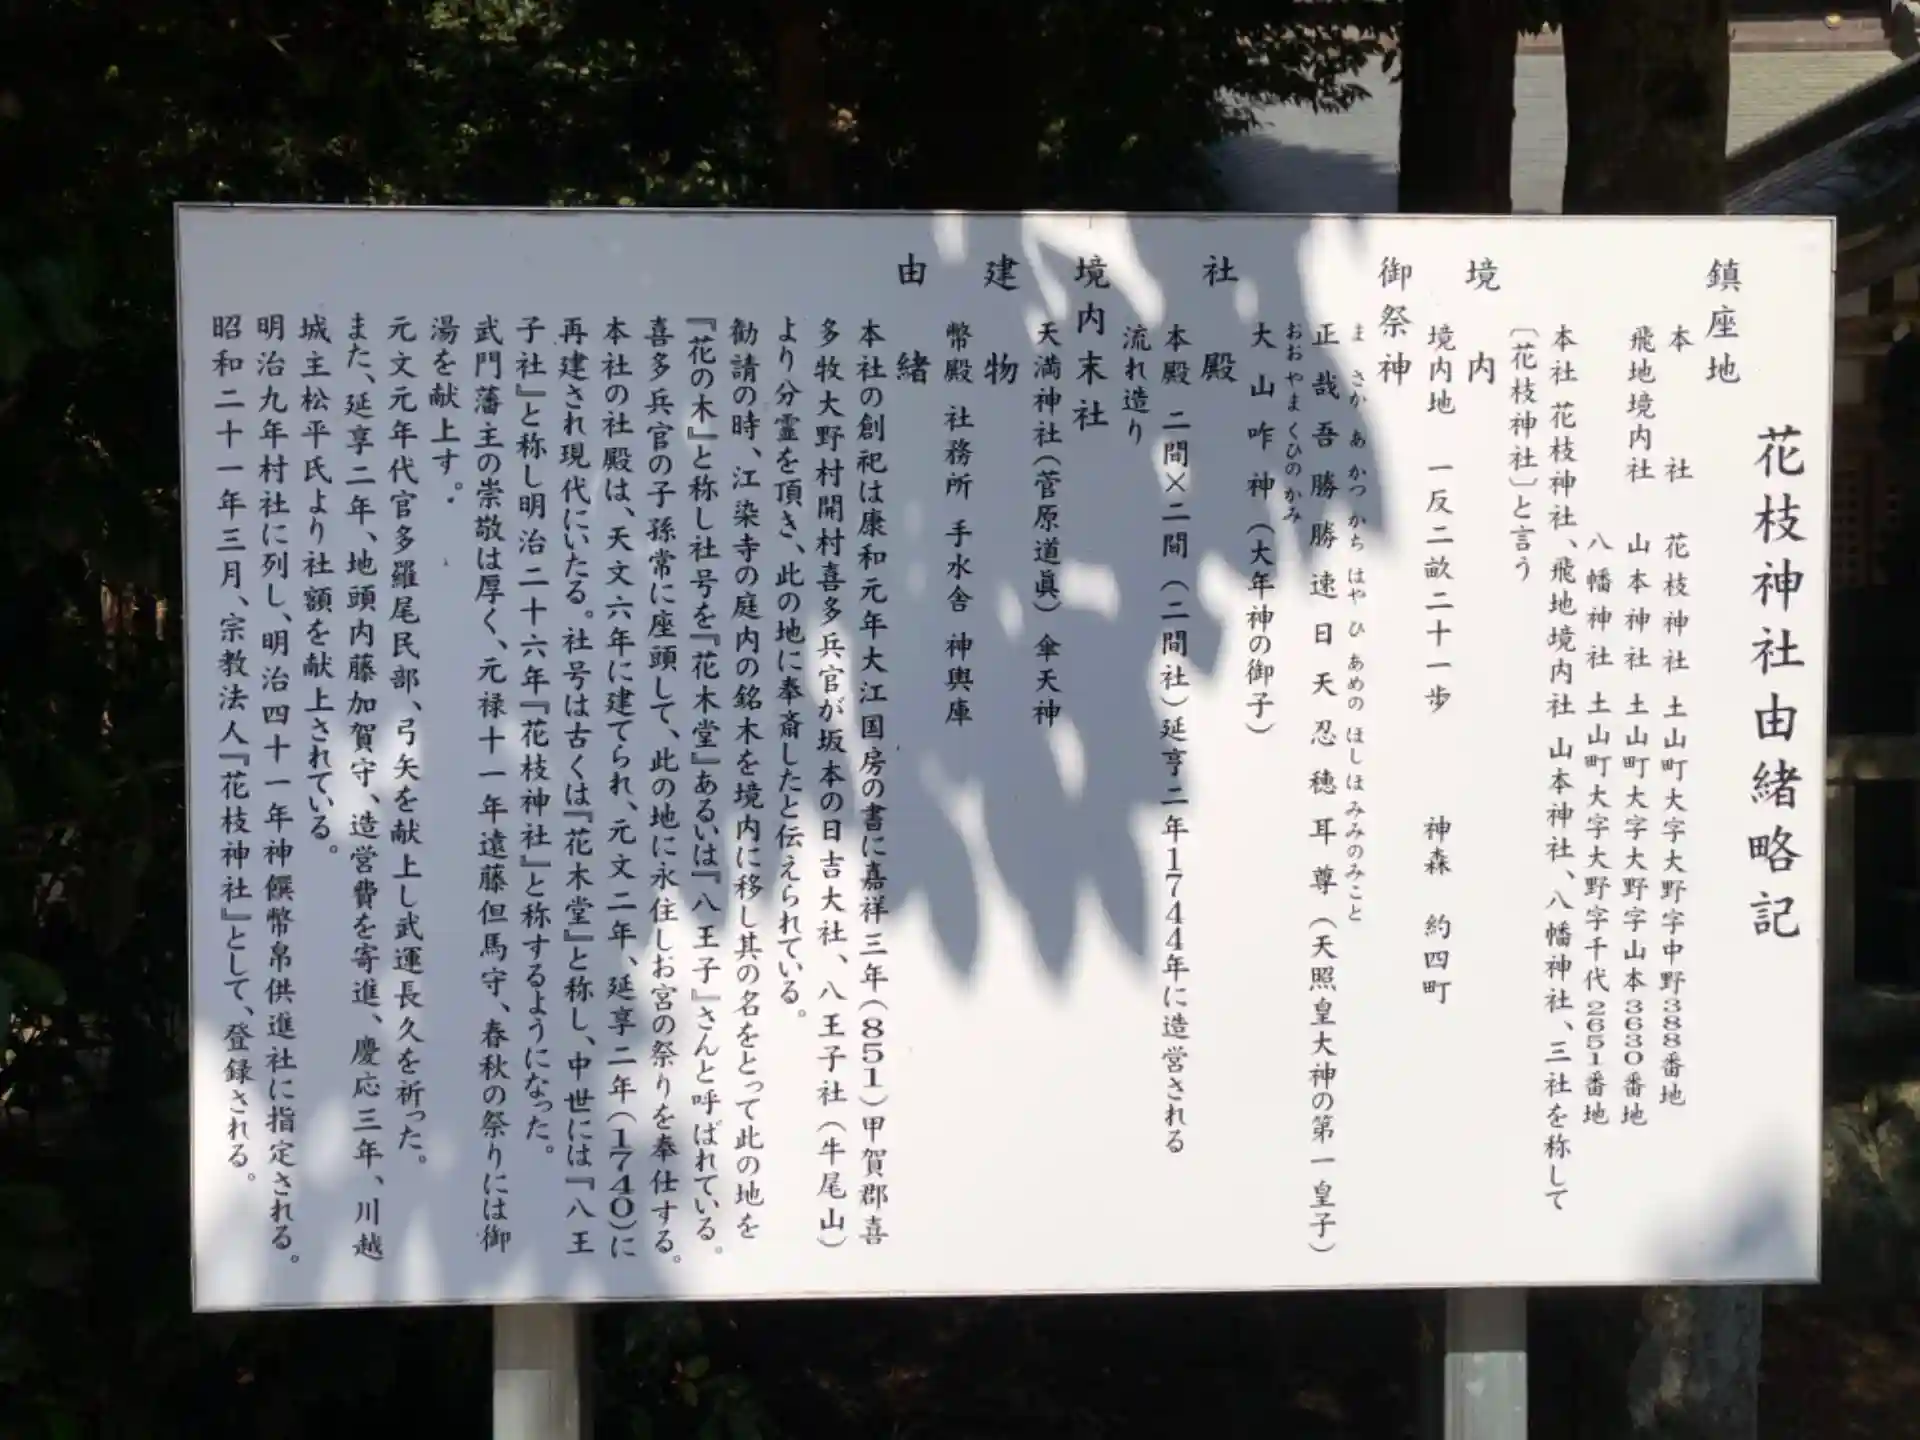 花枝神社由緒略記
鎮座地
本社 花枝神社 土山町大字大野字中野388番地
飛地境内社 山本神社 土山町大字大野字山本3630番地
八幡神社 土山町大字大野字千代2651番地
本社 花枝神社、飛地境内社 山本神社、八幡神社、三社を称して
〔花枝神社〕と言う
境内
境内地 一反二畝二十一歩 神森 約四町
御祭神
まさか あ かつ かち はや ひ あめの ほし ほ みみのみこと
正哉吾勝勝速日天忍穂耳尊（天照皇大神の第一皇子）
おおやまくひのかみ
大山咋神（大年神の御子）
社殿
本殿 二間×二間（二間社）延亨二年1744年に造営される
流れ造り
境内末社
天満神社（菅原道眞）傘天神
建物
幣殿 社務所 手水舎 神輿庫
由緒
本社の創祀は康和元年大江国房の書に嘉祥三年（851）甲賀郡喜
多牧大野村開村喜多兵官が坂本の日吉大社、八王子社（牛尾山）
より分霊を頂き、此の地に奉斎したと伝えられている。
勧請の時、江染寺の庭内の銘木を境内に移し其の名をとって此の地を
『花の木』と称し社号を『花木堂』あるいは『八王子』さんと呼ばれている。
喜多兵官の子孫常に座頭して、此の地に永住しお宮の祭りを奉仕する。
本社の社殿は、天文六年に建てられ、元文二年、延享二年（1740）に
再建され現代にいたる。社号は古くは『花木堂』と称し、中世には『八王
子社』と称し明治二十六年『花枝神社』と称するようになった。
武門藩主の崇敬は厚く、元禄十一年遠藤但馬守、春秋の祭りには御
湯を献上す。
元文元年代官多羅尾民部、弓矢を献上し武運長久を祈った。
また、延享二年、地頭内藤加賀守、造営費を寄進、慶応三年、川越
城主松平氏より社額を献上されている。
明治九年村社に列し、明治四十一年神饌幣帛供進社に指定される。
昭和二十一年三月、宗教法人『花枝神社』として、登録される。